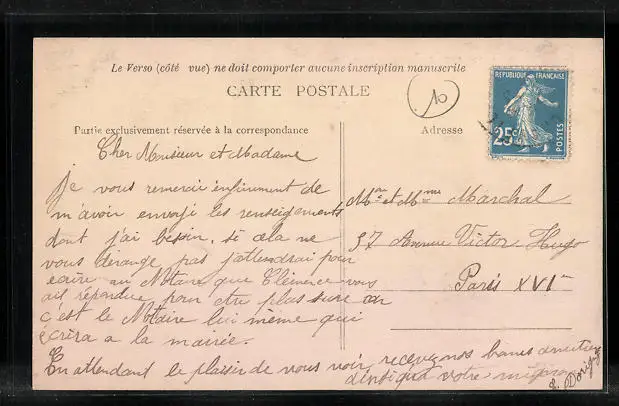 Le Verso (côté vue) ne doit comporter aucune inscription manuscrite
CARTE POSTALE
10
RÉPUBLIQUE FRANÇAISE
25c
POSTES
Partie exclusivement réservée à la correspondance
Adresse
Cher Monsieur et Madame
Je vous remerci enfiniment de
m'avoir envoyé les renseigements
dont j'ai besoin, si cela ne
vous dérange pas j'attendrai pour
écrire au Notaire que Clémence vous
ait répondue pour etre plus sure car
c'est le Notaire lui même qui
écrira a la mairie.
En attendant le plaisir de vous voir recevez nos bonnes amitiés
votre
Mr et Mme Marchal
37 Avenue Victor Hugo
Paris XVIe